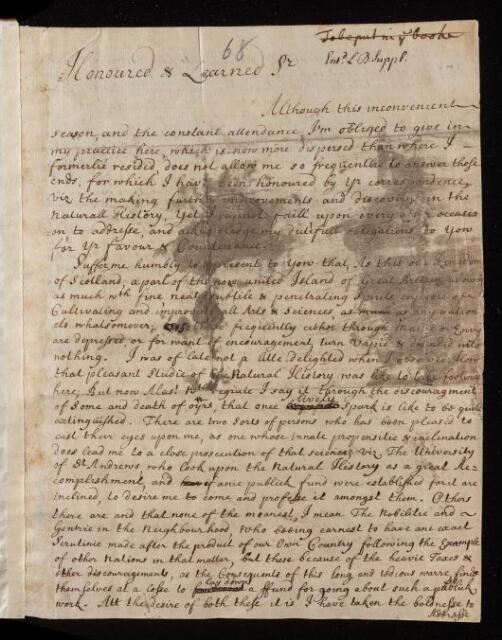 68
To be put in ye booke
Entd. L B Suppl.
Honoured & Learned Sr
Although this inconvenient
season, and the constant attendance, I'm obliged to give in
my practice here, which is now more dispersed than where I
formerlie resided, does not allow me so frequentlie to answer those
ends, for which I have been honoured by Yr correspondence,
viz the making further improvements and discoverys in the
Naturall History, Yet I cannot faill upon every occasi
on to addresse, and acknowledge my dutifull obligations to Yow
for Yr favour & Countenance.
Suffer me humbly to present to Yow that, As this Kingdom
of Scotland, a part of the now united Island of Great
as much wth fine neat subtile & penetrating Spirits
Cultivating and improving all Arts & Sciences, as any nation
els whatsomever, frequently either through or Envy
are depressed or for want of encouragement, turn Vapid & into
nothing. I was of late not a litle delighted when I
that pleasant Studie of the Naturall History was like to take footing
here; But now Alas! wth regrate I say it through the discouragment
of some and death of oyrs, that once lively Spark is like to be quite
extinguished. There are two sorts of persons who has been pleased to
cast their eyes upon me, as one whose innate propensitie & inclination
does lead me to a close prosecution of that science, Viz The University
of St Andrews, who look upon the Natural History as a great Ac
complishment, and if anie publick fund were established for it are
inclined, to desire me to come and professe it amongst them. Others
there are and that none of the meanest, I mean The Nobilitie and
Gentrie in the Neighbourhood, Who being earnest to have ane exact
Scrutinie made after the product of our Own Country following the Example
of other Nations in that matter, but these because of the heavie Taxes &
other discouragements, as the Consequents of this long and tedious warre, find
themselves at a losse to lay down a ffund for going about such a publick
work. Att the desire of both these it is I have taken the boldnesse to